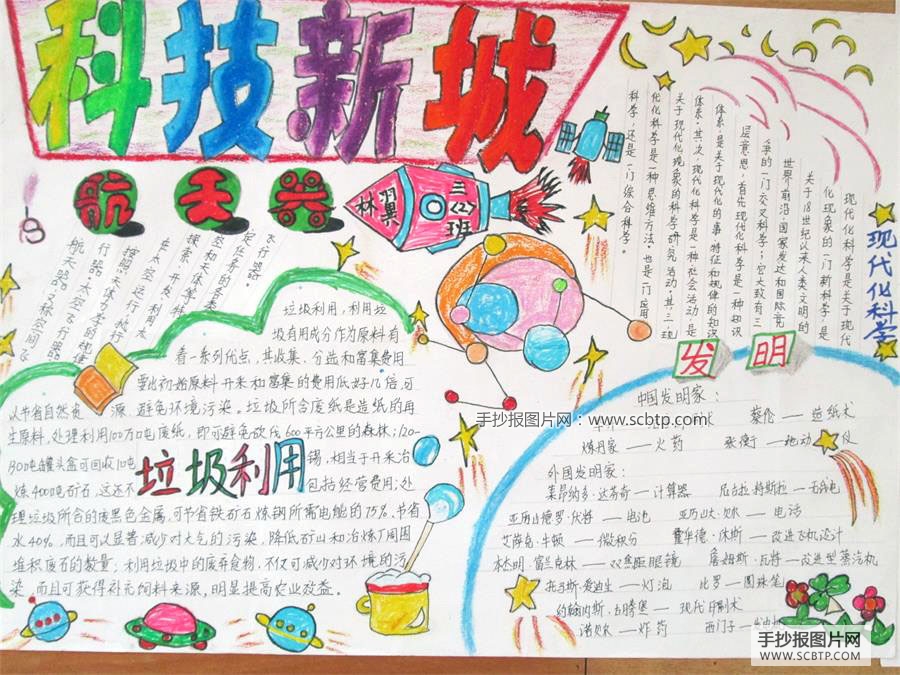 科技新城
航天器
林翼
三(2)班
航天器,又称空间飞
行器、太空飞行器。
按照天体力学的规律
在太空运行,执行
探索、开发、利用太
空和天体等特
定任务的各类
飞行器。
现代化科学
现代化科学是关于现代
化现象的一门新科学,是
关于18世纪以来人类文明的
世界前沿、国家发达和国际竞
争的一门交叉科学;它大致有三
层意思:首先,现代化科学是一种知识
体系,是关于现代化的事、特征和规律的知识
体系。其次,现代化科学是一种社会活动,是
关于现代化现象的科学研究活动。其三,现
代化科学是一种思维方法。也是一门应用
科学,还是一门综合科学。
垃圾利用
垃圾利用,利用垃
圾有用成分作为原料有
着一系列优点,其收集、分选和富集费用
要比初始原料开采和富集的费用低好几倍,可
以节省自然资源,避免环境污染。垃圾所含废纸是造纸的再
生原料,处理利用100万吨废纸,即可避免砍伐600平方公里的森林;120-
130吨罐头盒可回收10吨锡,相当于开采冶
炼400吨矿石,这还不包括经营费用;处
理垃圾所含的废黑色金属,可节省铁矿石炼钢所需电能的75%,节省
水40%,而且可以显著减少对大气的污染,降低矿山和冶炼厂周围
堆积废石的数量;利用垃圾中的废弃食物,不仅可减少对环境的污
染,而且可获得补充饲料来源,明显提高农业效益。
手抄报图片网:www.scbtp.com
发明
中国发明家:
蔡伦——造纸术
炼丹家——火药 张衡——地动仪
外国发明家:
莱昂纳多·达芬奇——计算器 尼古拉·特斯拉——无线电
亚历山德罗·伏特——电池 亚历山大·贝尔——电话
艾萨克·牛顿——微积分 霍华德·休斯——改进飞机设计
本杰明·富兰克林——双焦距眼镜 詹姆斯·瓦特——改进型蒸汽机
托马斯·爱迪生——灯泡 比罗——圆珠笔
约翰内斯·古腾堡——现代印刷术
诺贝尔——炸药 西门子——
手抄报图片网
WWW.SCBTP.COM